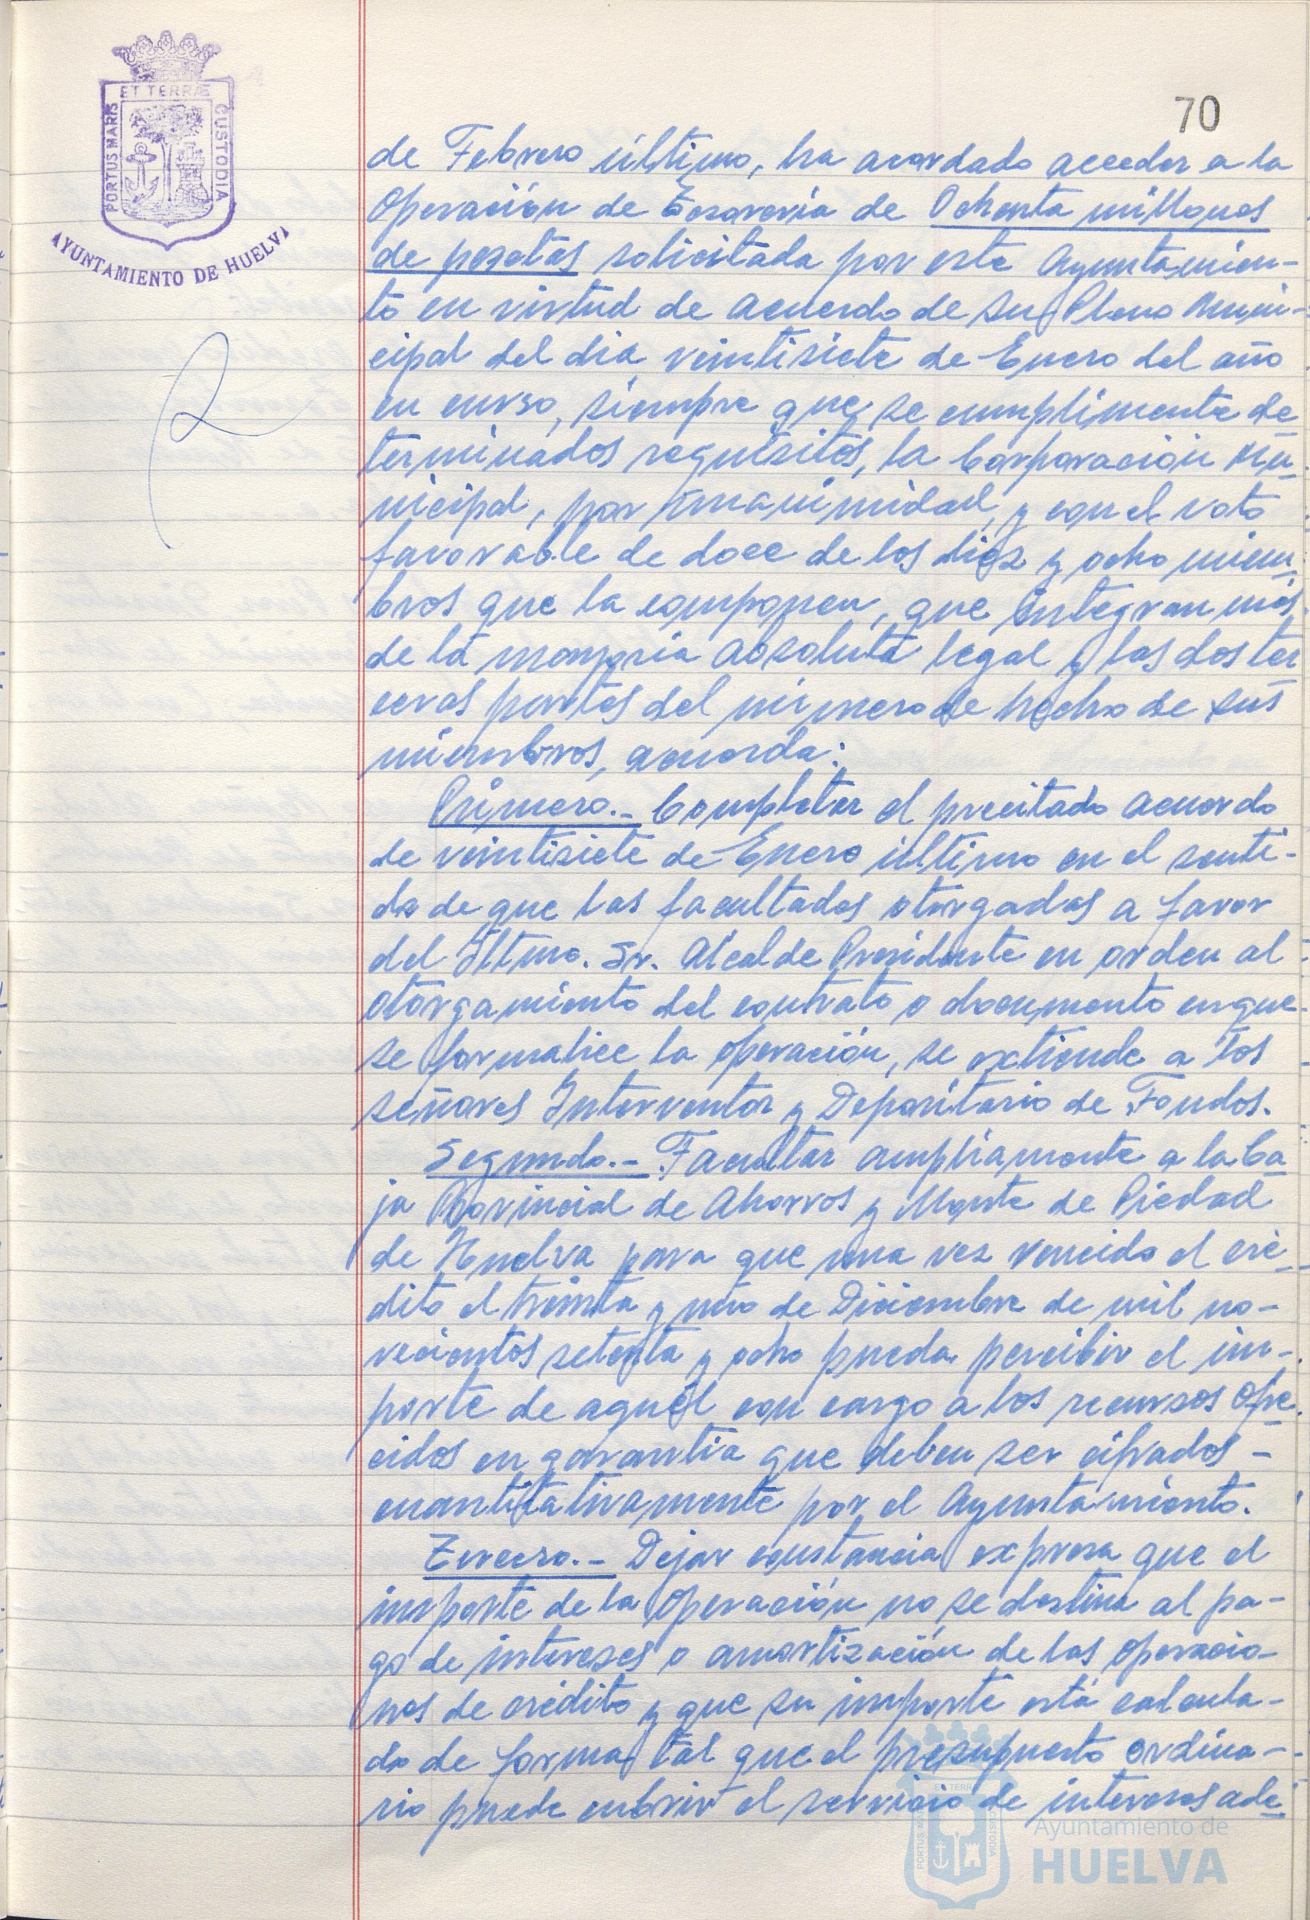 ET TERRÆ
PORTUS MARIS
CUSTODIA
AYUNTAMIENTO DE HUELVA
70
de Febrero último, ha acordado acceder a la
Operación de Tesorería de Ochenta millones
de pesetas solicitada por este Ayuntamien-
to en virtud de acuerdo de su Pleno Muni-
cipal del dia veintisiete de Enero del año
en curso, siempre que se cumplimente de
terminados requisitos, la Corporación Mu-
nicipal, por unanimidad, y con el voto
favorable de doce de los diez y ocho miem-
bros que la componen, que integran más
de la mayoria absoluta legal y las dos ter
ceras partes del número de hecho de sus
miembros, acuerda:
Primero.- Completar el precitado acuerdo
de veintisiete de Enero último en el senti-
do de que las facultades otorgadas a favor
del Iltmo. Sr. Alcalde Presidente en orden al
otorgamiento del contrato o documento en que
se formalice la operación, se extiende a los
señores Interventor y Depositario de Fondos.
Segundo.- Facultar ampliamente a la Ca-
ja Provincial de Ahorros y Monte de Piedad
de Huelva para que una vez vencido el cré-
dito el treinta y uno de Diciembre de mil no-
vecientos setenta y ocho pueda percibir el im-
porte de aquél con cargo a los recursos ofre
cidos en garantia que deben ser cifrados -
cuantitativamente por el Ayuntamiento.
Tercero.- Dejar constancia expresa que el
importe de la Operación no se destina al pa-
go de intereses o amortización de las operacio-
nes de crédito y que su importe está calcula-
do de forma tal que el presupuesto ordina-
rio puede cubrir el servicio de intereses ade
Ayuntamiento de
HUELVA